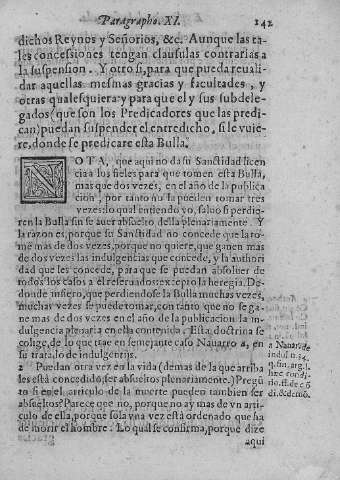 Paragrapho. XI. 242
dichos Reynos y Señorios, &c. Aunque las ta-
les concessiones tengan clausulas contrarias a
la suspension. Y otro si, para que pueda reuali-
dar aquellas mesmas gracias y facultades, y
otras qualesquiera y para que el y sus subdele-
gados (que son los Predicadores que las predi-
can) puedan suspender el entredicho, si le vuie-
re, donde se predicare esta Bulla.
NOTA, que aqui no da su Sanctidad licen
cia a sus fieles para que tomen esta Bulla,
mas que dos vezes, en el año de la publica
cion, por tanto no la pueden tomar tres
vezes: lo qual entiendo yo, saluo si perdie-
ren la Bulla sin se auer absuelto della plenariamente. Y
la razon es, porque su Sanctidad no concede que la to-
me mas de dos vezes, porque no quiere, que ganen mas
de dos vezes las indulgencias que concede, y la authori
dad que les concede, para que se puedan absoluer de
todos los casos a el reseruados: excepto la heregia. De-
donde infiero, que perdiendose la Bulla muchas vezes,
muchas vezes se puede tomar, con tanto que no se ga-
ne mas de dos vezes en el año de la publicacion la in-
dulgencia plenaria en ella contenida. Esta doctrina se
colige, de lo que trae en semejante caso Nauarro a, en
su tratado de indulgentijs.
a Nauar. de
indul
q. fin. arg. l.
2 Puedan otra vez en la vida (demas de la que arriba
les està concedido, ser absueltos plenariamente.) Pregũ
to si en el articulo de la muerte pueden tambien ser
absueltos? Parece que no, porque no ay mas de vn arti-
culo de ella, porque sola vna vez està ordenado que ha
de morir el hombre. Lo qual se confirma, porque dize
aqui